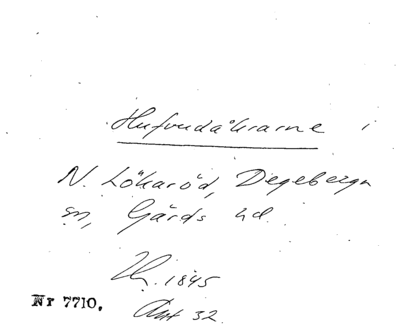 Hufvudåkrarne i
N. Lökaröd, Degeberga
sn, Gärds hd.
1845
Nr 7710. Ant 32.